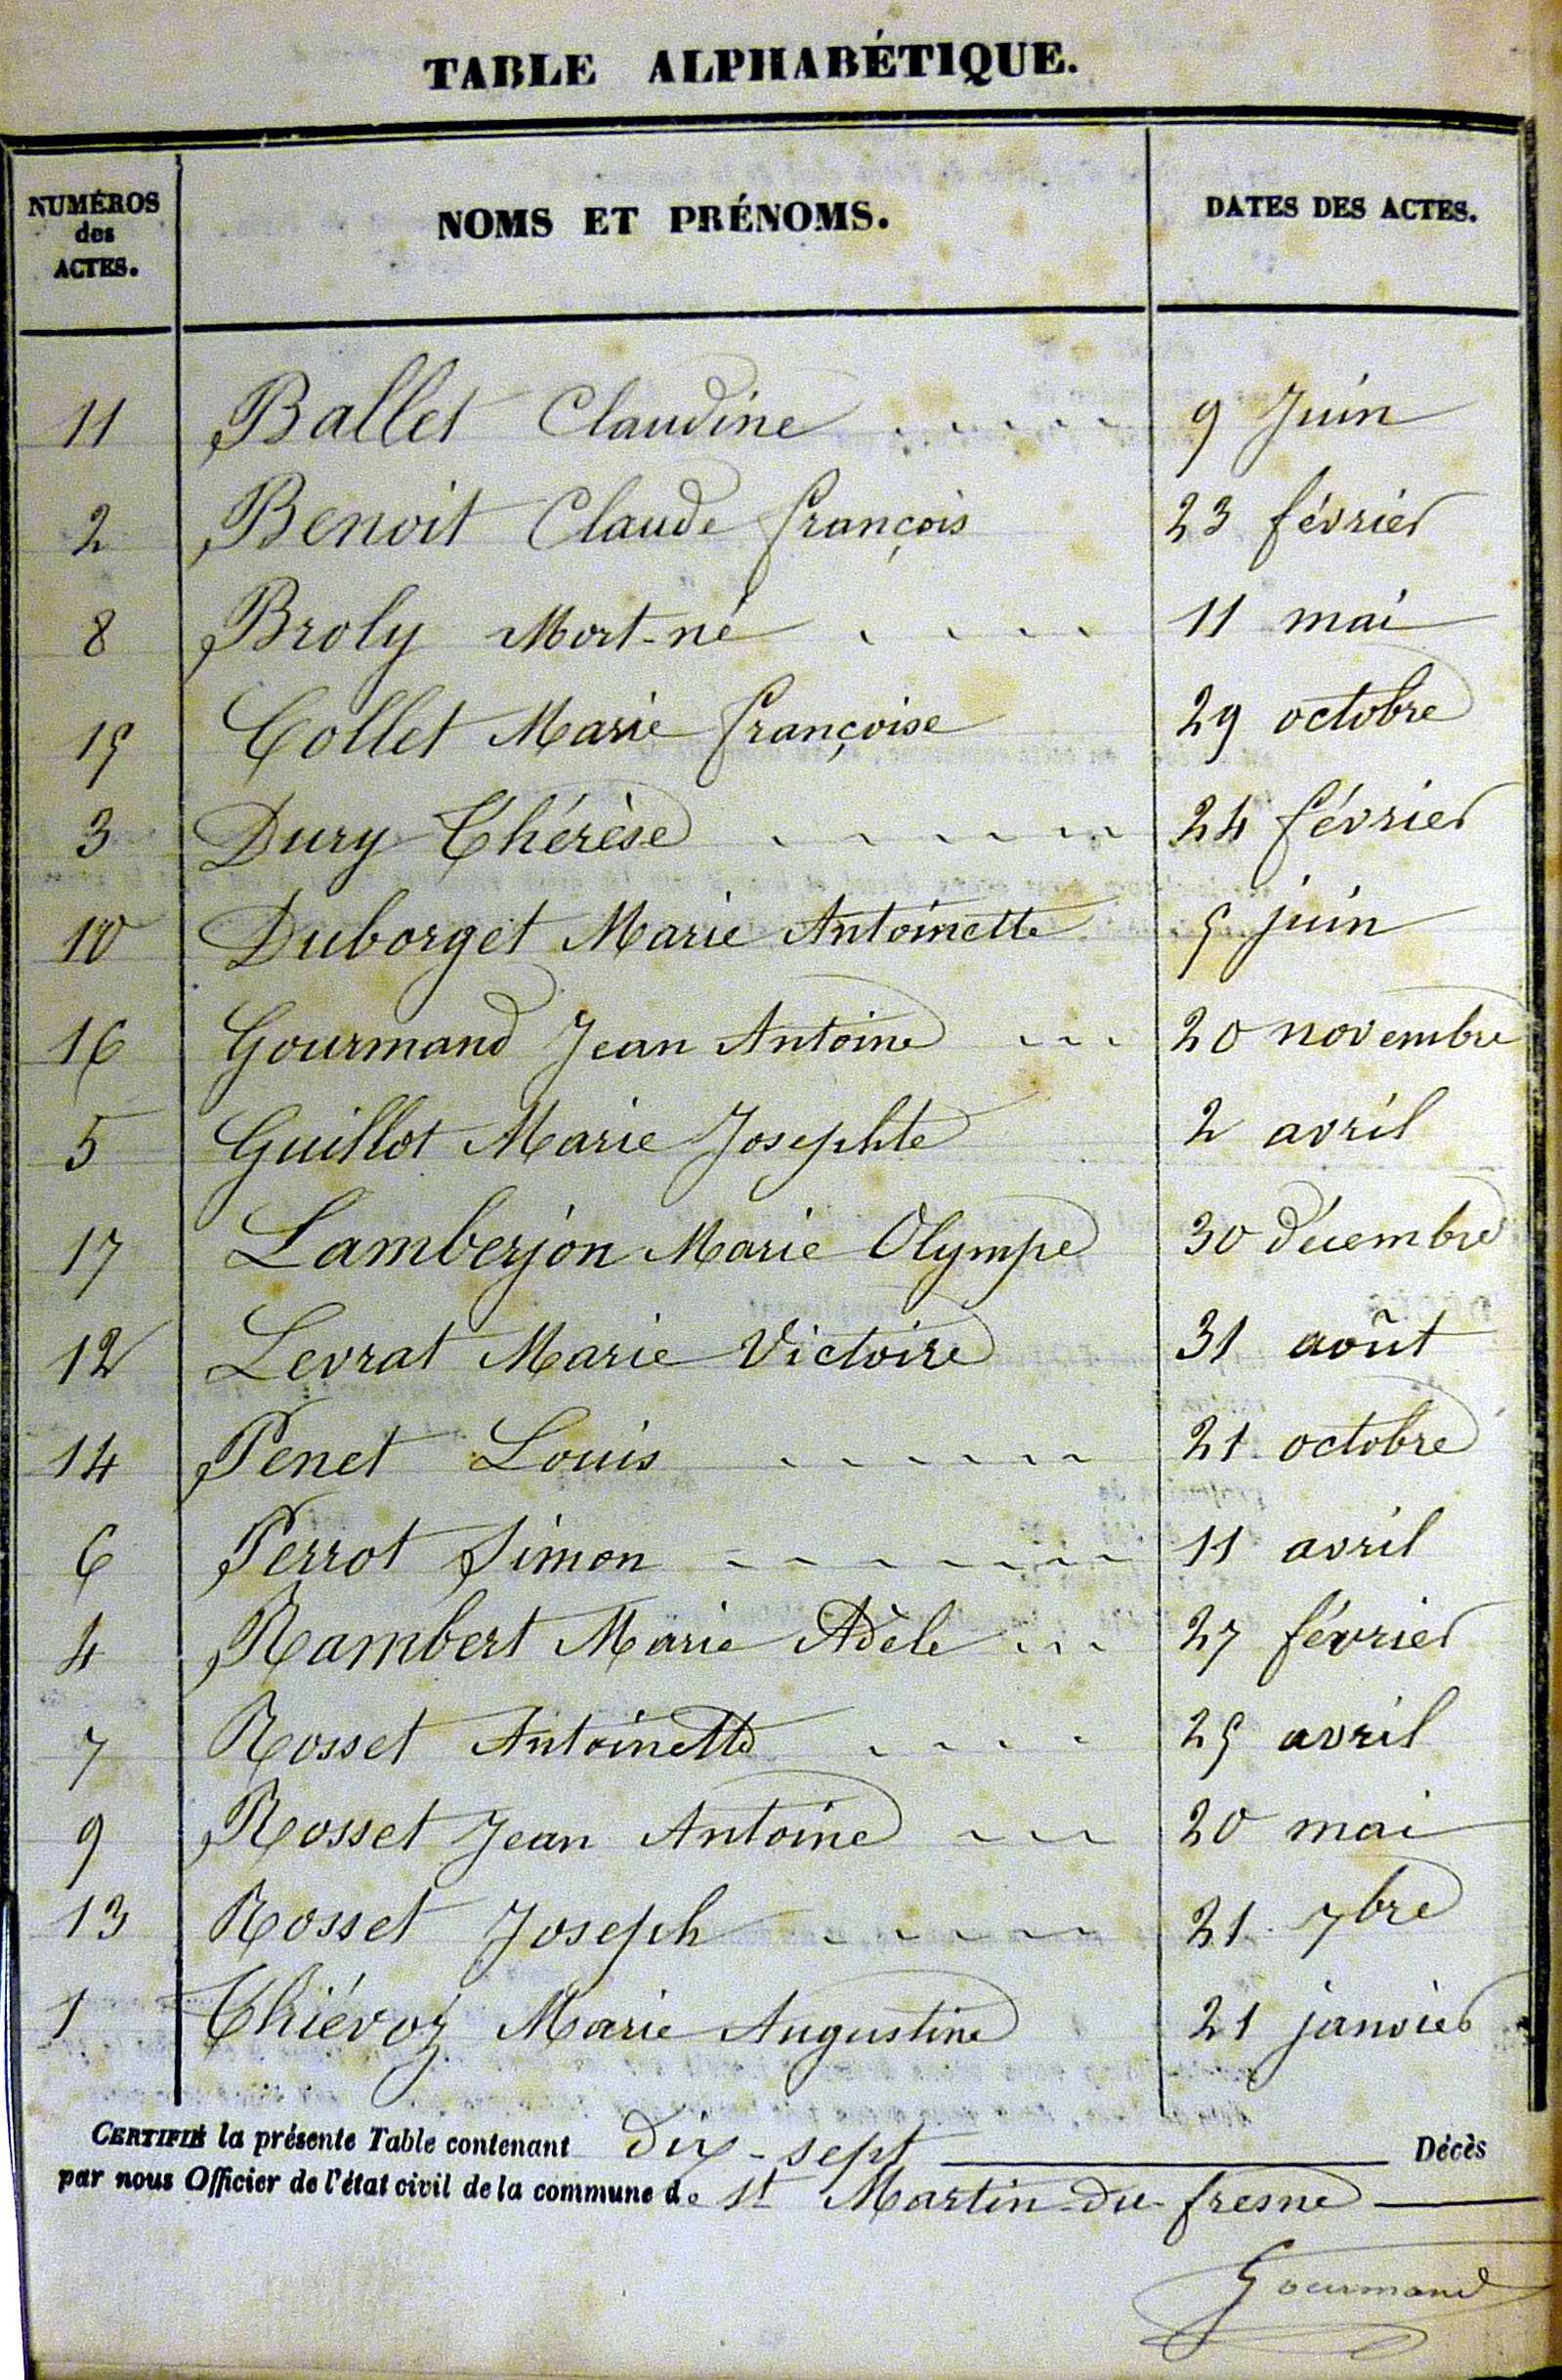 TABLE ALPHABÉTIQUE.
NUMÉROS des ACTES. NOMS ET PRÉNOMS. DATES DES ACTES.
11 Ballet Claudine 9 Juin
2 Benoit Claude françois 23 février
8 Broly Mort-né 11 mai
15 Collet Marie françoise 29 octobre
3 Dury Thérèse 24 février
10 Duborget Marie Antoinette 5 juin
16 Gourmand Jean Antoine 20 novembre
5 Guillot Marie Josephte 2 avril
17 Lamberjon Marie Olympe 30 décembre
12 Levrat Marie Victoire 31 août
14 Penet Louis 21 octobre
6 Perrot Simon 11 avril
4 Rambert Marie Adèle 27 février
7 Rosset Antoinette 25 avril
9 Rosset Jean Antoine 20 mai
13 Rosset Joseph 21 7bre
1 Thiévoz Marie Augustine 21 janvier
CERTIFIÉ la présente Table contenant dix-sept Décès
par nous Officier de l'état civil de la commune de St Martin-du-fresne
Gourmand